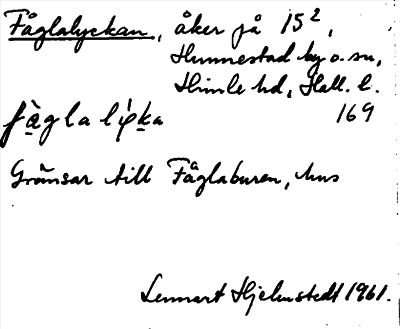 Fåglalyckan, åker på 15²,
Hunnestad by o. sn,
Himle hd, Hall. l.
fàgla lýka 169
Gränsar till Fåglaburen, hus
Lennart Hjelmstedt 1961.